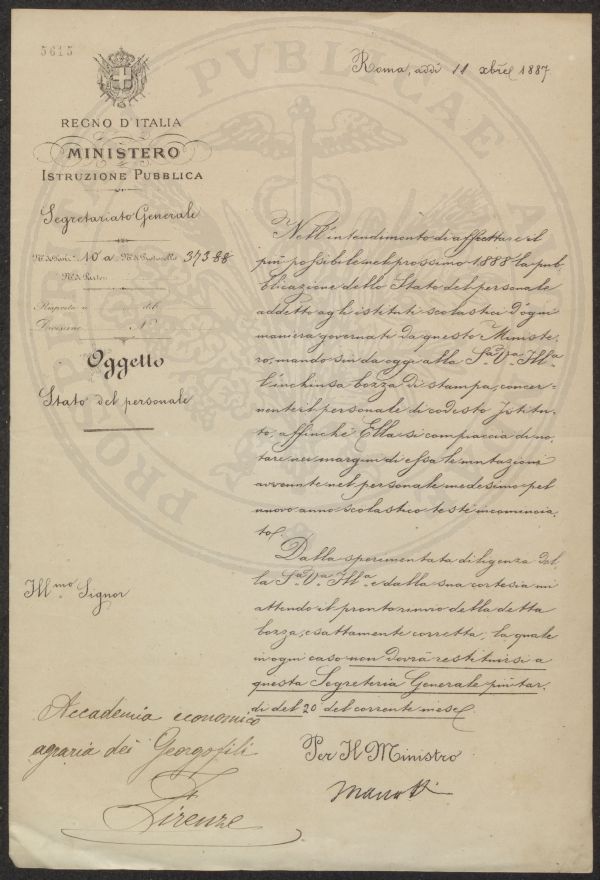 5615
Roma, addì 11 xbre 1887
REGNO D'ITALIA
MINISTERO
ISTRUZIONE PUBBLICA
Segretariato Generale
N.° di Posiz.e 10 a N.° di Protocollo 37388
N.° di Parten.
Risposta a del
Divisione N.°
Oggetto
Stato del personale
Nell'intendimento di affrettare il
più possibile nel prossimo 1888 la pub-
blicazione dello Stato del personale
addetto agli istituti scolastici d'ogni
maniera governati da questo Ministe-
ro, mando sin da oggi alla S.a V.a Ill.a
l'inchiusa bozza di stampa, concer-
nente il personale di codesto Istitu-
to, affinchè Ella si compiaccia di no-
tare nei margini di essa le mutazioni
avvenute nel personale medesimo pel
nuovo anno scolastico testè incomincia-
to.
Dalla sperimentata diligenza del-
la S.a V.a Ill.a e dalla sua cortesia mi
attendo il pronto rinvio della detta
bozza, esattamente corretta, la quale
in ogni caso non dovrà restituirsi a
questa Segreteria Generale più tar-
di del 20 del corrente mese.
Per Il Ministro
Ill.mo Signor
Accademia economico
agraria dei Georgofili
Firenze
PUBLICAE